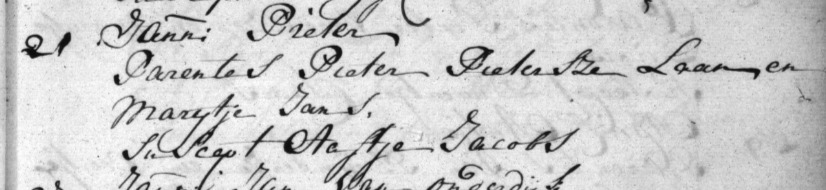 21 Janni Pieter
Parentes Pieter Pietersze Laan en
Marytje Jans.
Suscept Aaftje Jacobs
Janni Jan van